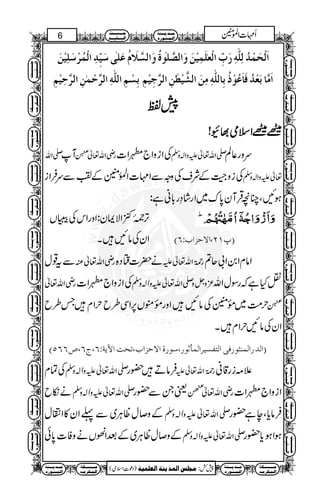 6
اُمہات المؤمنین
اَلْحَمْدُ لِلّٰہِ رَبِّ الْعٰلَمِیْنَ وَالصَّلٰوۃُ وَالسَّلَامُ عَلٰی سَیِّدِ الْمُرْسَلِیْنَ
اَمَّا بَعْدُ فَاَعُوْذُ بِاللّٰہِ مِنَ الشَّیْطٰنِ الرَّجِیْمِ بِسْمِ اللّٰہِ الرَّحْمٰنِ الرَّحِیْمِ
پیش لفظ
میٹھے میٹھے اسلامی بھائیو!
سرورِ عالم صلی اللہ تعالیٰ علیہ والہ وسلم کی ازواجِ مطہرات رضی اللہ تعالیٰ عنہن آپ صلی اللہ
تعالیٰ علیہ والہ وسلم کی زوجیت کے شرف کی وجہ سے امہات المؤمنین کے لقب سے سرفراز
ہوئیں، چنانچہ قرآنِ پاک میں ارشادِ ربانی ہے:
وَاَزْوَاجُہٗۤ اُمَّہٰتُہُمْ ؕ ترجمۂ کنزالایمان: اور اس کی بیبیاں
(پ۲۱، الاحزاب:۶) ان کی مائیں ہیں۔
امام ابن ابی حاتم رحمۃ اللہ تعالیٰ علیہ نے حضرت قتادہ رضی اللہ تعالیٰ عنہ سے یہ قول
نقل کیا ہے کہ رسول اللہ عزوجل و صلی اللہ تعالیٰ علیہ والہ وسلم کی ازواجِ مطہرات رضی اللہ تعالیٰ
عنہن حرمت میں مؤمنین کی مائیں ہیں اور مؤمنوں پر اسی طرح حرام ہیں جس طرح
ان کی مائیں حرام ہیں۔
(الدرالمنثور فی التفسیر المأثور، سورۃ الاحزاب، تحت الآیۃ:۶، ج۶، ص۵۶۶)
علامہ زرقانی رحمۃ اللہ تعالیٰ علیہ فرماتے ہیں حضور صلی اللہ تعالیٰ علیہ والہ وسلم کی تمام
ازواجِ مطہرات رضی اللہ تعالیٰ عنہن یعنی جن سے حضور صلی اللہ تعالیٰ علیہ والہ وسلم نے نکاح
فرمایا، چاہے حضور صلی اللہ تعالیٰ علیہ والہ وسلم کے وصالِ ظاہری سے پہلے ان کا انتقال
ہوا ہو یا حضور صلی اللہ تعالیٰ علیہ والہ وسلم کے وصالِ ظاہری کے بعد انھوں نے وفات پائی
پیش کش: مجلس المدینۃ العلمیۃ (دعوتِ اسلامی)